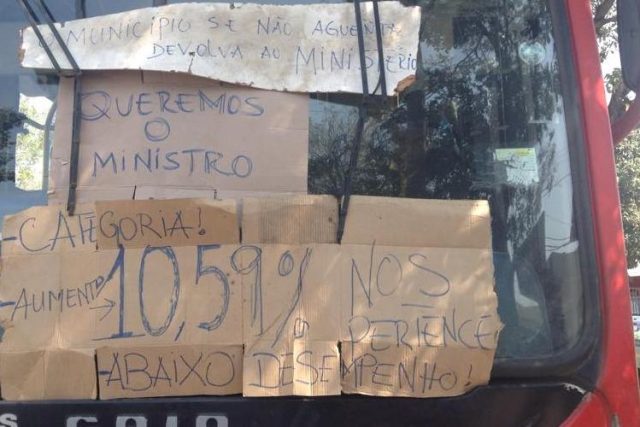 O MUNICIPIO SE NÃO AGUENTA
DEVOLVA AO MINISTÉRIO
QUEREMOS
O
MINISTRO
-CATEGORIA!
-AUMENTO→ 10,59% NOS
PERIENCE
-ABAIXO DESEMPENHO!